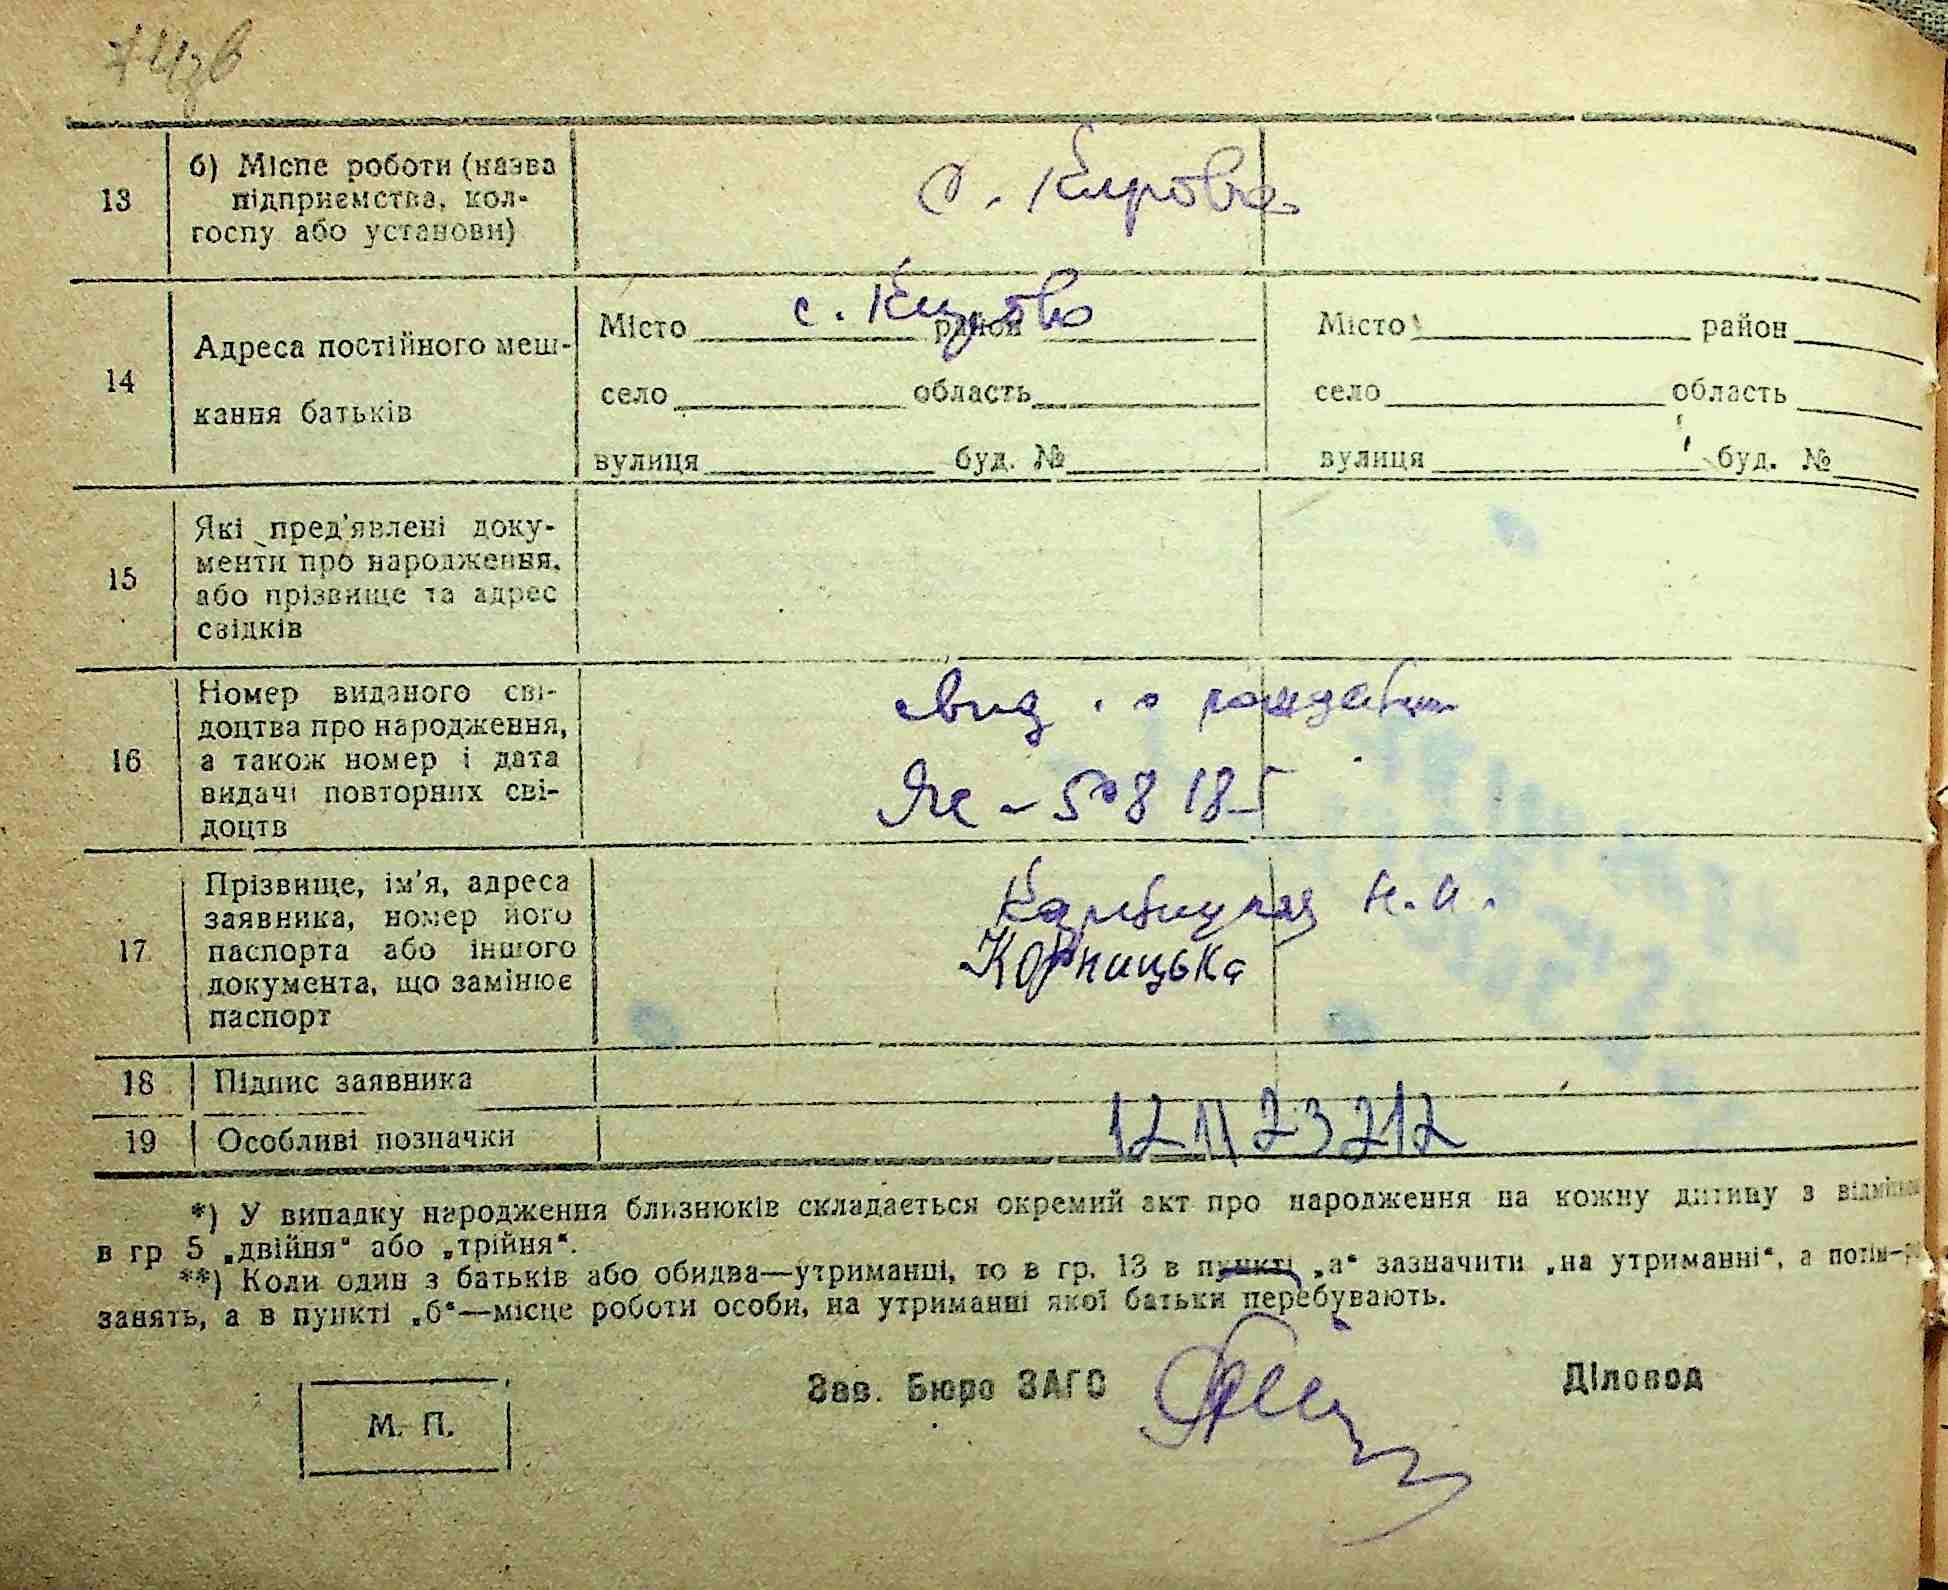 13
б) Місце роботи (назва
підприємства, кол-
госпу або установи)
с. Кирово
14
Адреса постійного меш-
кання батьків
с. Кирово
Місто район
село область
вулиця буд. №
Місто район
село область
вулиця буд. №
15
Які пред'явлені доку-
менти про народження,
або прізвище та адрес
свідків
16
Номер виданого сві-
доцтва про народження,
а також номер і дата
видачі повторних сві-
доцтв
свид. о рождении
17
Прізвище, ім'я, адреса
заявника, номер його
паспорта або іншого
документа, що замінює
паспорт
Н. И.
Корницька
18 Підпис заявника
19 Особливі позначки
*) У випадку народження близнюків складається окремий акт про народження на кожну дитину з
в гр 5 „двійня“ або „трійня“.
**) Коли один з батьків або обидва—утриманці, то в гр. 13 в пункті „а“ зазначити „на утриманні“, а потім
занять, а в пункті „б“—місце роботи особи, на утриманні якої батьки перебувають.
М. П.
Зав. Бюро ЗАГС
Діловод